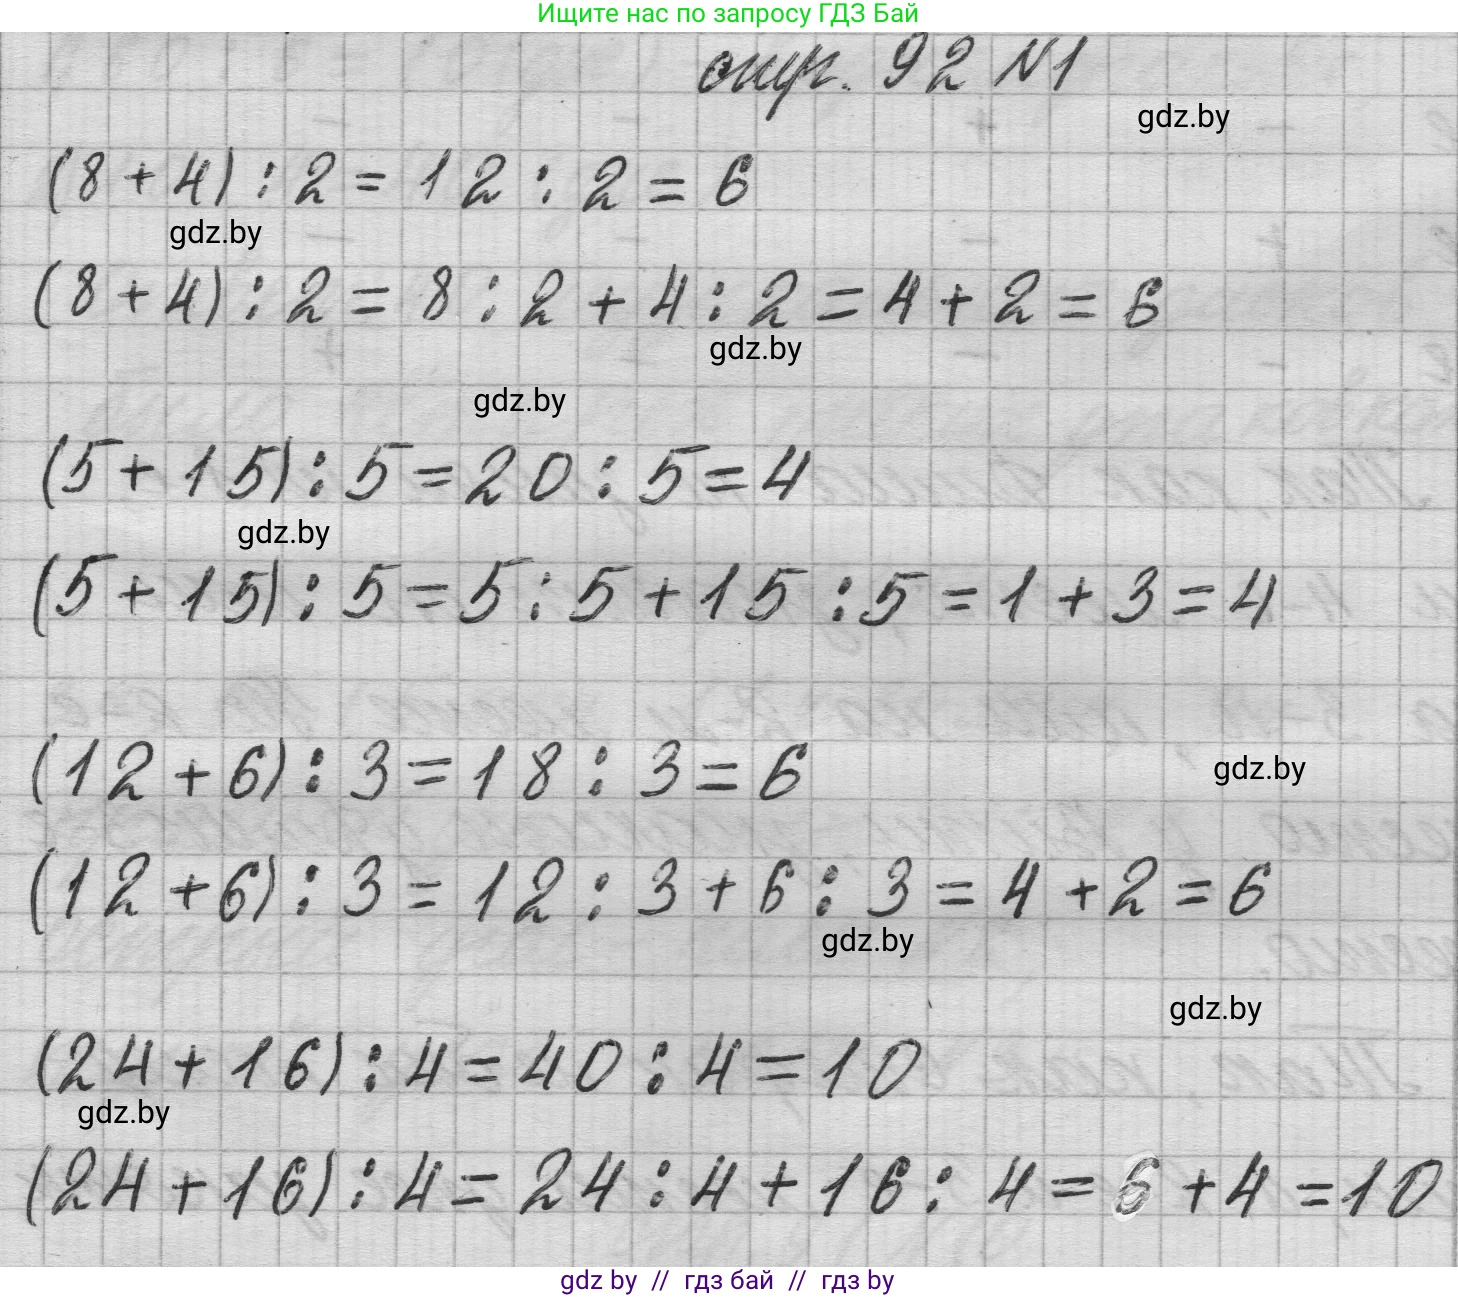 Ищите нас по запросу ГДЗ Бай
стр. 92 №1
gdz.by
(8 + 4) : 2 = 12 : 2 = 6
gdz.by
(8 + 4) : 2 = 8 : 2 + 4 : 2 = 4 + 2 = 6
gdz.by
gdz.by
(5 + 15) : 5 = 20 : 5 = 4
gdz.by
(5 + 15) : 5 = 5 : 5 + 15 : 5 = 1 + 3 = 4
(12 + 6) : 3 = 18 : 3 = 6
gdz.by
(12 + 6) : 3 = 12 : 3 + 6 : 3 = 4 + 2 = 6
gdz.by
gdz.by
(24 + 16) : 4 = 40 : 4 = 10
gdz.by
(24 + 16) : 4 = 24 : 4 + 16 : 4 = 6 + 4 = 10
gdz by // гдз бай // гдз by